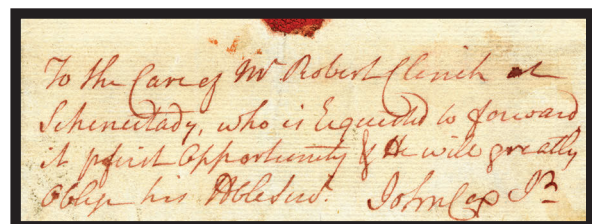 To the Care of Mr Robert Clinch at
Schenectady, who is Requested to forward
it pfirst Opportunity & He will greatly
Oblige his Hble Servt. John Cox Jr